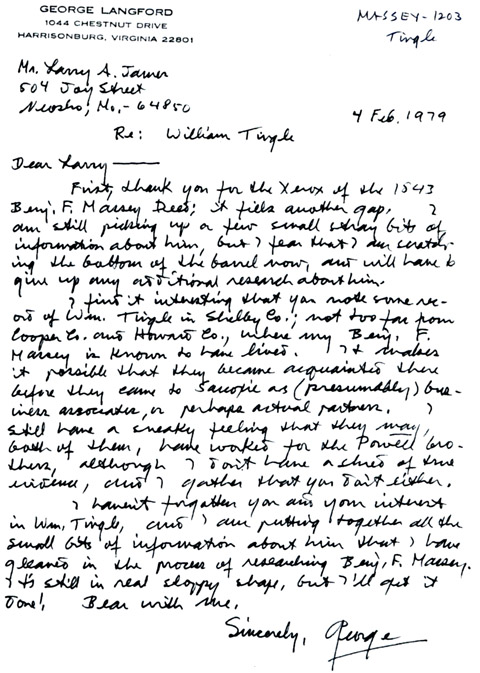 GEORGE LANGFORD
1044 CHESTNUT DRIVE
HARRISONBURG, VIRGINIA 22801
MASSEY-1203
Tingle
Mr. Larry A. James
504 Joy Street
Neosho, Mo. - 64850
4 Feb. 1979
Re: William Tingle
Dear Larry —
First, thank you for the Xerox of the 1843
Benj. F. Massey Deed; it fills another gap. I
am still picking up a few small stray bits of
information about him, but I fear that I am scratch-
ing the bottom of the barrel now, and will have to
give up any additional research about him.
I find it interesting that you note some rec-
ord of Wm. Tingle in Shelby Co.; not too far from
Cooper Co. and Howard Co., where my Benj. F.
Massey is known to have lived. It makes
it possible that they became acquainted there
before they came to Sarcoxie as (presumably) bus-
iness associates, or perhaps actual partners. I
still have a sneaky feeling that they may,
both of them, have worked for the Powell bro-
thers, although I don't have a shred of true
evidence, and I gather that you don't either.
I haven't forgotten you and your interest
in Wm. Tingle, and I am putting together all the
small bits of information about him that I have
gleaned in the process of researching Benj. F. Massey.
It's still in real sloppy shape, but I'll get it
done! Bear with me.
Sincerely, George